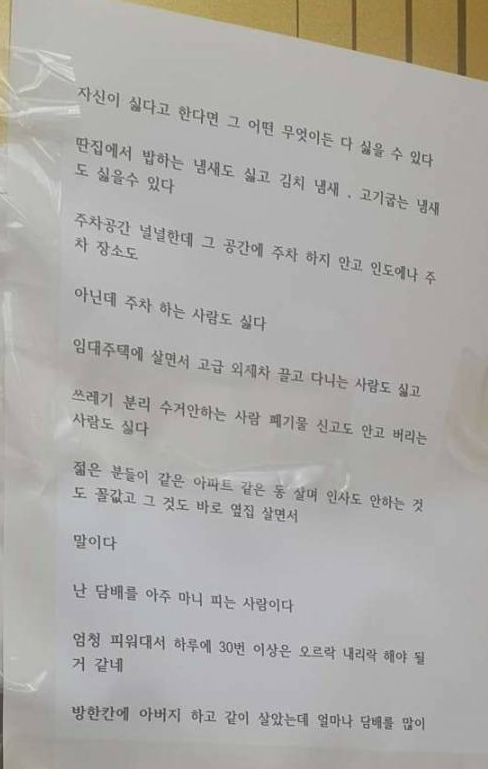 자신이 싫다고 한다면 그 어떤 무엇이든 다 싫을 수 있다
딴집에서 밥하는 냄새도 싫고 김치 냄새 . 고기굽는 냄새
도 싫을수 있다
주차공간 널널한데 그 공간에 주차 하지 안고 인도에나 주
차 장소도
아닌데 주차 하는 사람도 싫다
임대주택에 살면서 고급 외제차 끌고 다니는 사람도 싫고
쓰레기 분리 수거안하는 사람 폐기물 신고도 안고 버리는
사람도 싫다
젊은 분들이 같은 아파트 같은 동 살며 인사도 안하는 것
도 꼴값고 그 것도 바로 옆집 살면서
말이다
난 담배를 아주 마니 피는 사람이다
엄청 피워대서 하루에 30번 이상은 오르락 내리락 해야 될
거 같네
방한칸에 아버지 하고 같이 살았는데 얼마나 담배를 많이